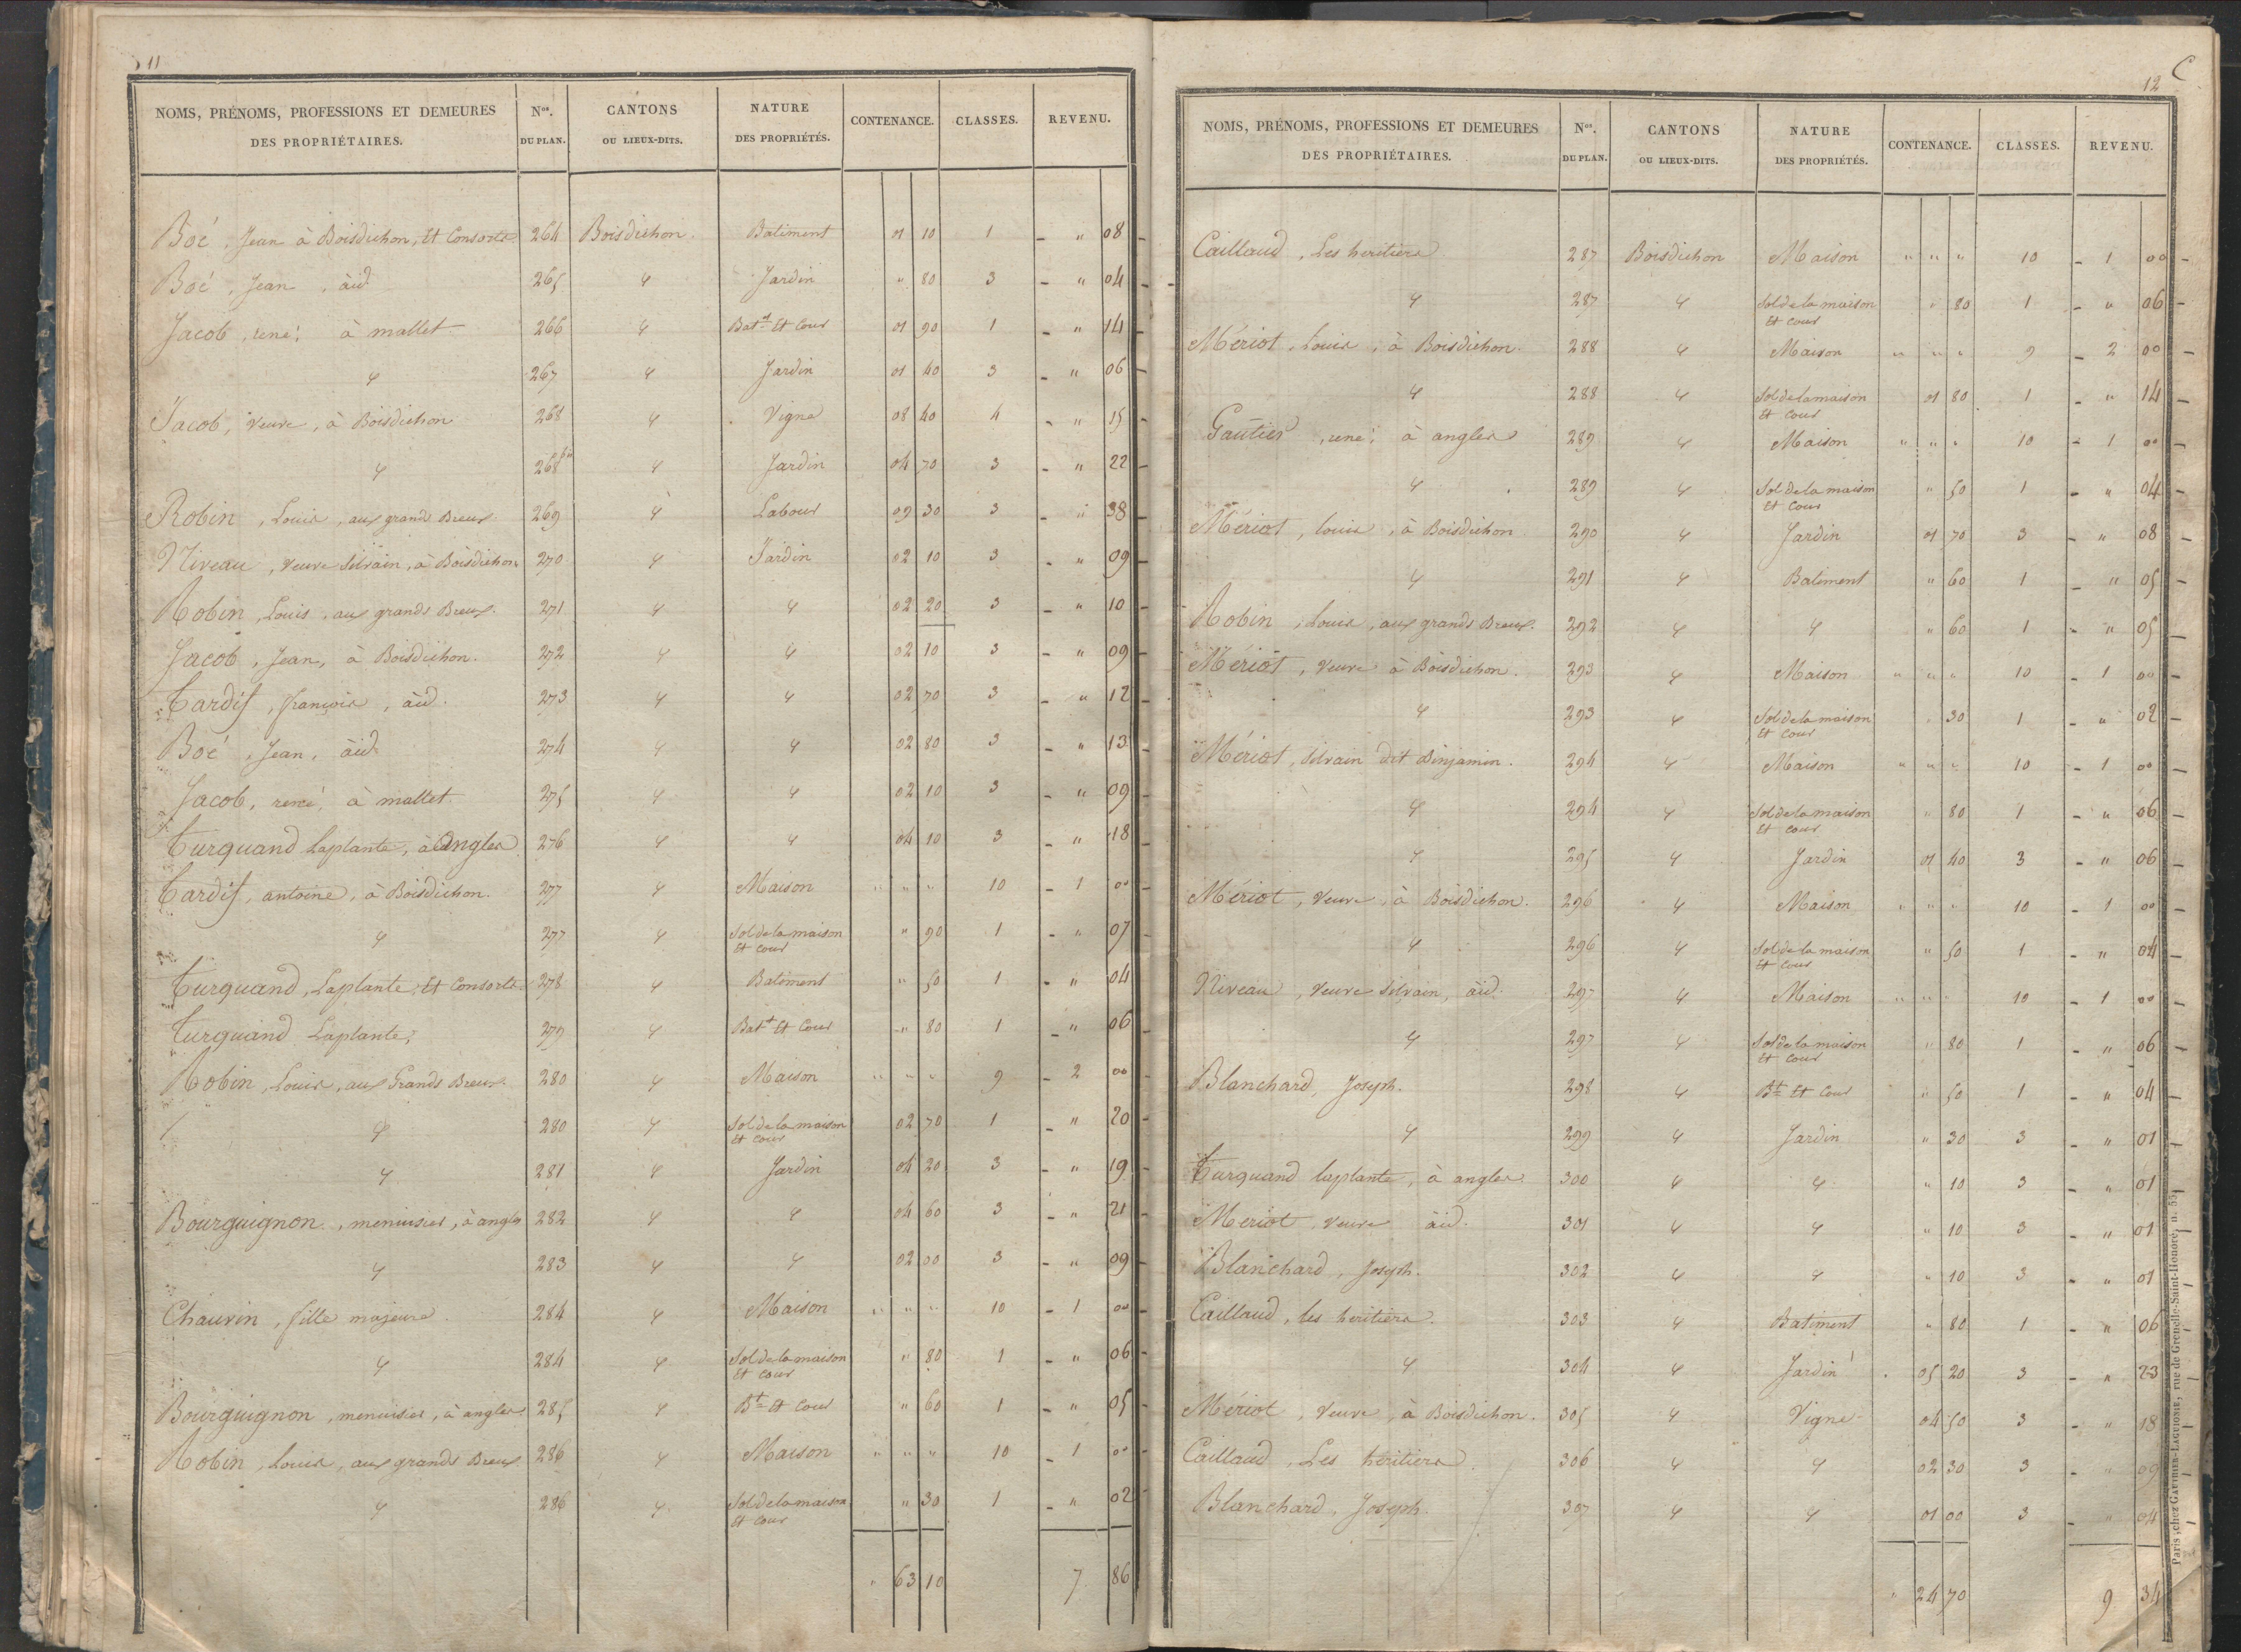 11
NOMS, PRÉNOMS, PROFESSIONS ET DEMEURES DES PROPRIÉTAIRES. Nos. DU PLAN. CANTONS OU LIEUX-DITS. NATURE DES PROPRIÉTÉS. CONTENANCE. CLASSES. REVENU.
Boé, Jean à Boisdichon, Et Consorts 264 Boisdichon Batiment 01 10 1 - " 08
Boé, Jean, àid. 265 4 Jardin " 80 3 - " 04
Jacob, rené, à mallet 266 4 Batt Et Cour 01 90 1 - " 14
4 267 4 Jardin 01 40 3 - " 06
Jacob, Veuve, à Boisdichon 268 4 Vigne 08 40 4 - " 15
4 268 bis 4 Jardin 04 70 3 - " 22
Robin, Louis, aux grands Breux 269 4 Labour 09 30 3 - " 38
Niveau, Veuve Silvain, à Boisdichon 270 4 Jardin 02 10 3 - " 09
Robin, Louis, aux grands Breux. 271 4 4 02 20 3 - " 10
Jacob, Jean, à Boisdichon. 272 4 4 02 10 3 - " 09
Tardif, françois, àid. 273 4 4 02 70 3 - " 12
Boé, Jean, àid. 274 4 4 02 80 3 - " 13
Jacob, rené, à mallet. 275 4 4 02 10 3 - " 09
Turquand Laplante, à Angles 276 4 4 04 10 3 - " 18
Tardif, antoine, à Boisdichon. 277 4 Maison " " " 10 - 1 00
4 277 4 Sol de la maison Et Cour " 90 1 - " 07
Turquand, Laplante, Et Consorts 278 4 Batiment " 50 1 - " 04
Turquand Laplante, 279 4 Batt Et Cour " 80 1 - " 06
Robin, Louis, aux Grands Breux. 280 4 Maison " " " 9 - 2 00
4 280 4 Sol de la maison Et Cour 02 70 1 - " 20
4 281 4 Jardin 04 20 3 - " 19
Bourguignon, menuisier, à angles 282 4 4 04 60 3 - " 21
4 283 4 4 02 00 3 - " 09
Chauvin, fille majeure. 284 4 Maison " " " 10 - 1 00
4 284 4 Sol de la maison Et Cour " 80 1 - " 06
Bourguignon, menuisier, à angles. 285 4 Bt Et Cour " 60 1 - " 05
Robin, Louis, aux grands Breux 286 4 Maison " " " 10 - 1 00
4 286 4 Sol de la maison Et Cour " 30 1 - " 02
" 63 10 7 86
C
12
NOMS, PRÉNOMS, PROFESSIONS ET DEMEURES DES PROPRIÉTAIRES. Nos. DU PLAN. CANTONS OU LIEUX-DITS. NATURE DES PROPRIÉTÉS. CONTENANCE. CLASSES. REVENU.
Caillaud, Les heritiers. 287 Boisdichon Maison " " " 10 - 1 00
4 287 4 Sol de la maison Et Cour " 80 1 - " 06
Mériot, Louis, à Boisdichon. 288 4 Maison " " " 9 - 2 00
4 288 4 Sol de la maison Et Cour 01 80 1 - " 14
Gautier, rené, à angles 289 4 Maison " " " 10 - 1 00
4 289 4 Sol de la maison Et Cour " 50 1 - " 04
Mériot, louis, à Boisdichon 290 4 Jardin 01 70 3 - " 08
4 291 4 Batiment " 60 1 - " 05
Robin, Louis, aux grands Breux. 292 4 4 " 60 1 - " 05
Mériot, Veuve à Boisdichon. 293 4 Maison " " " 10 - 1 00
4 293 4 Sol de la maison Et Cour " 30 1 - " 02
Mériot, Silvain dit Binjamin. 294 4 Maison " " " 10 - 1 00
4 294 4 Sol de la maison Et Cour " 80 1 - " 06
4 295 4 Jardin 01 40 3 - " 06
Mériot, Veuve, à Boisdichon. 296 4 Maison " " " 10 - 1 00
4 296 4 Sol de la maison Et Cour " 50 1 - " 04
Niveau, Veuve Silvain, àid. 297 4 Maison " " " 10 - 1 00
4 297 4 Sol de la maison Et Cour " 80 1 - " 06
Blanchard, Joseph. 298 4 Bt Et Cour " 50 1 - " 04
4 299 4 Jardin " 30 3 - " 01
Turquand laplante, à angles 300 4 4 " 10 3 - " 01
Meriot, Veuve àid. 301 4 4 " 10 3 - " 01
Blanchard, Joseph. 302 4 4 " 10 3 - " 01
Caillaud, les heritiers. 303 4 Batiment " 80 1 - " 06
4 304 4 Jardin 05 20 3 - " 23
Mériot, Veuve, à Boisdichon. 305 4 Vigne 04 50 3 - " 18
Caillaud, Les heritiers. 306 4 4 02 30 3 - " 09
Blanchard, Joseph. 307 4 4 01 00 3 - " 04
" 24 70 9 34
Paris, chez GAUTHIER-LAGUIONIE, rue de Grenelle-Saint-Honoré, n. 55.